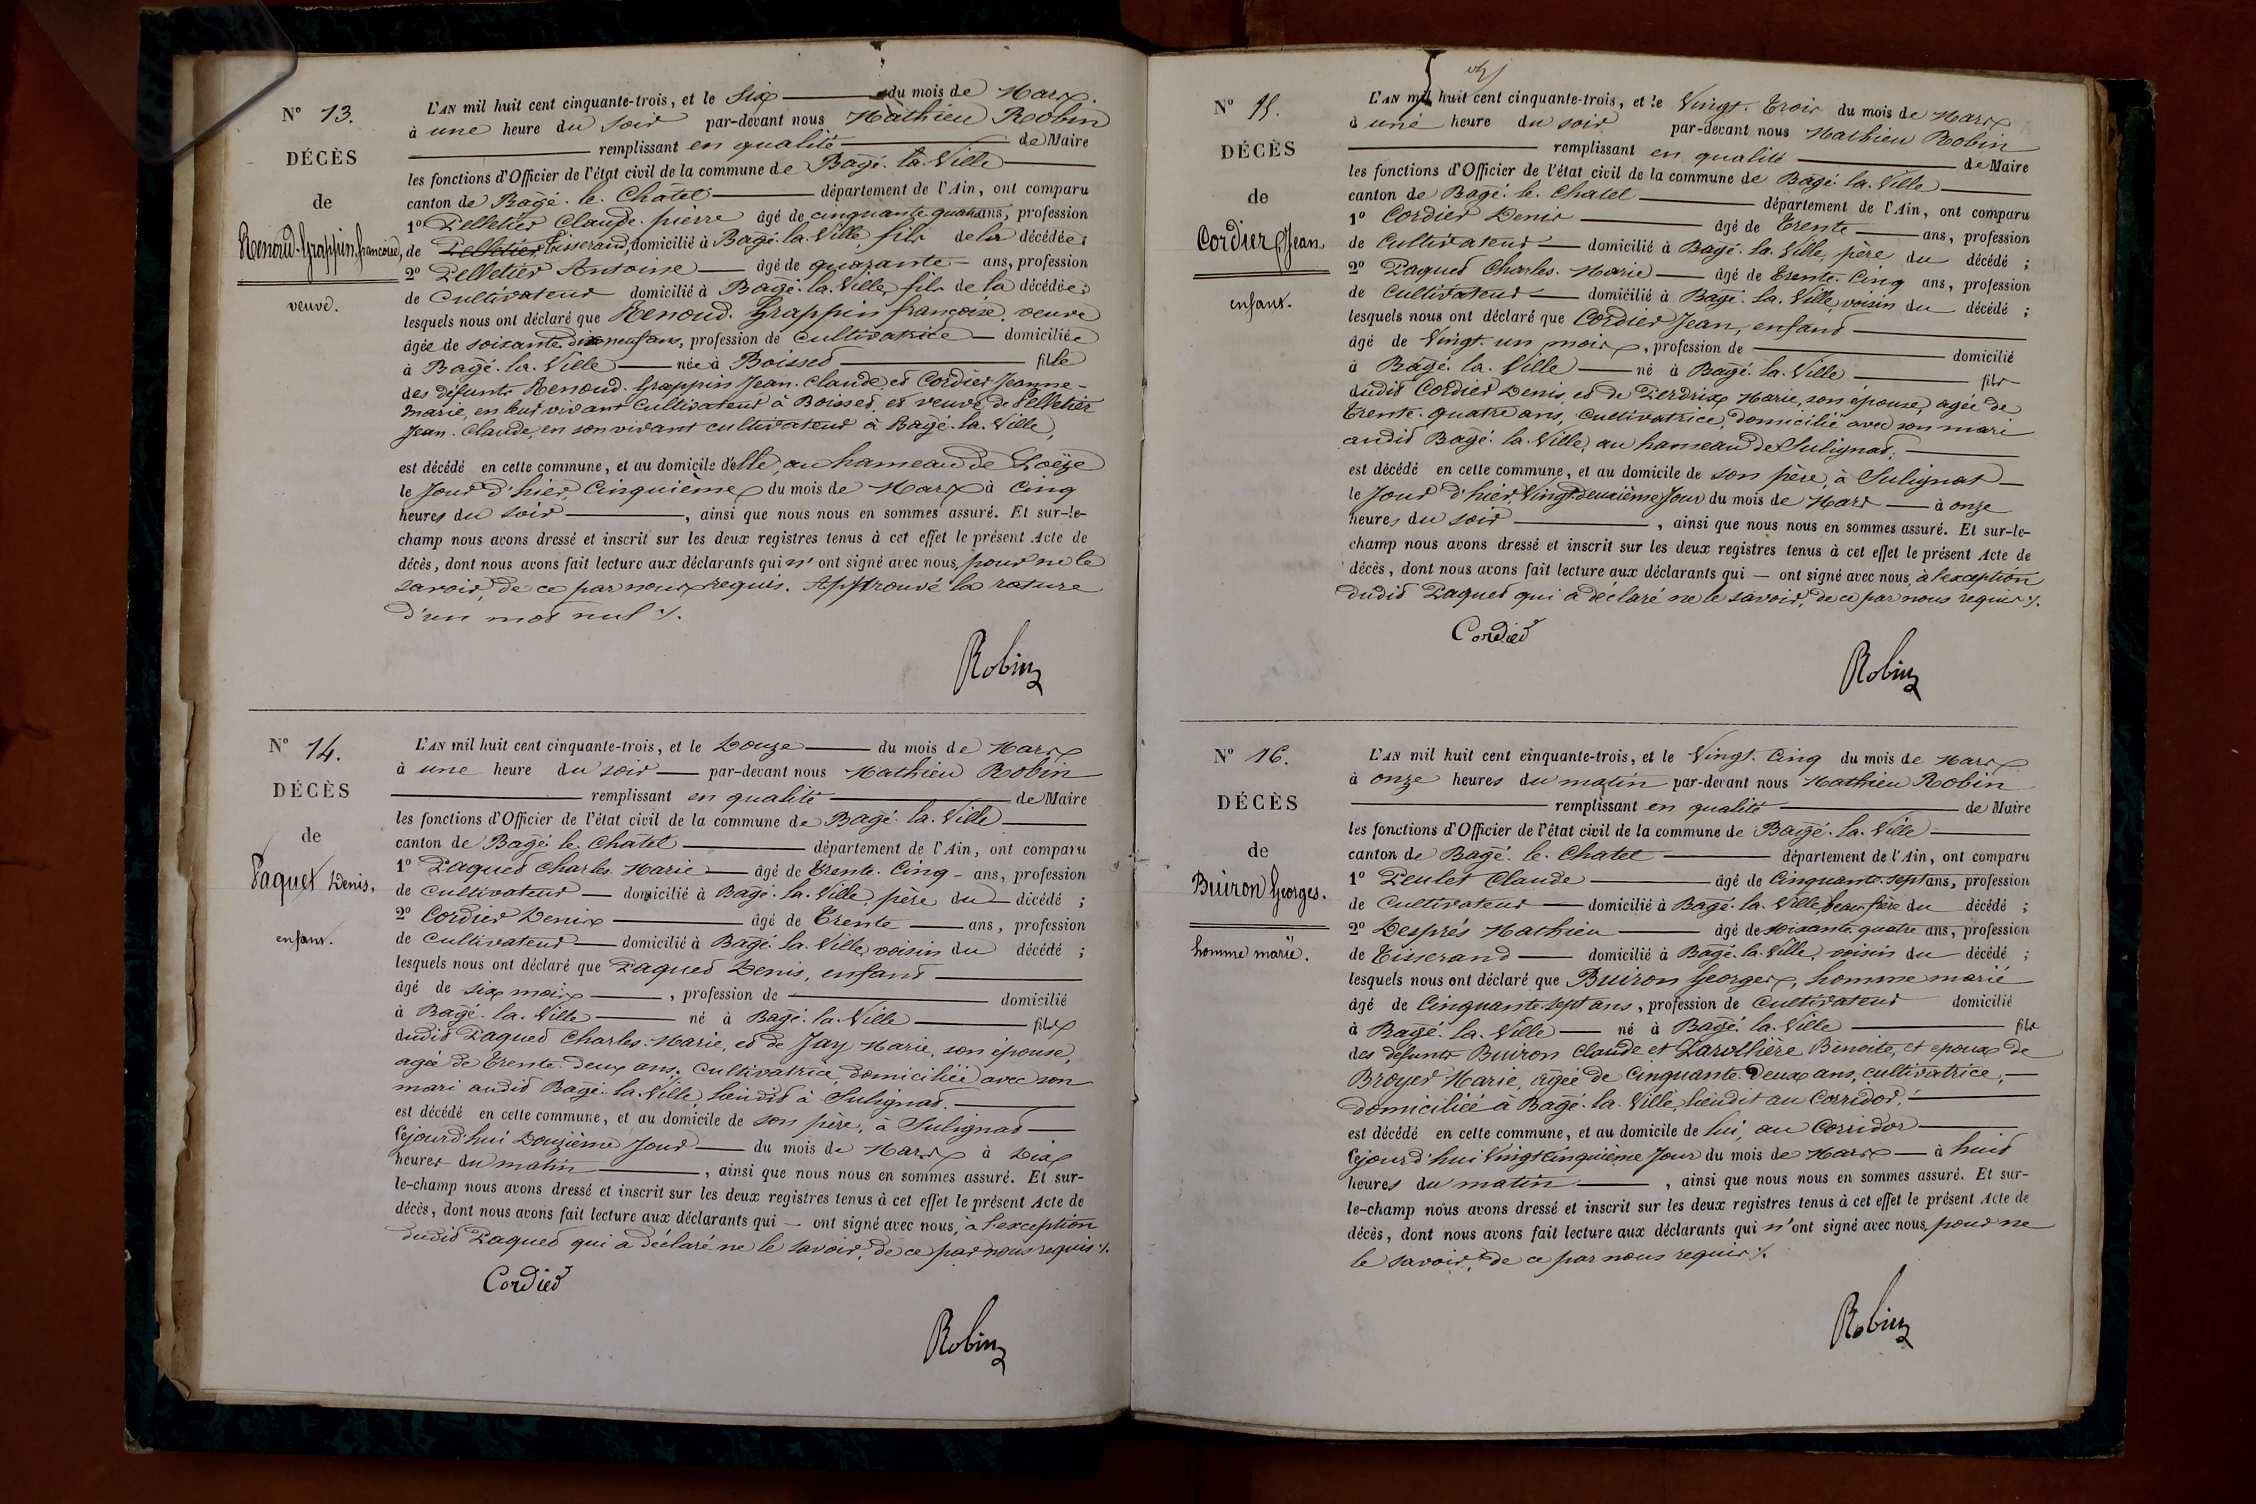 N° 13.
DÉCÈS
de
Renoud-Grappin françoise,
veuve.
L'AN mil huit cent cinquante-trois, et le Six du mois de Mars
à une heure du soir par-devant nous Mathieu Robin
remplissant en qualité de Maire
les fonctions d'Officier de l'état civil de la commune de Bagé-la-Ville
canton de Bagé-le-Châtel département de l'Ain, ont comparu
1° Pelletier Claude-pierre âgé de cinquante quatre ans, profession
de Pelletier Tisserand, domicilié à Bagé-la-Ville, fils de la décédée ;
2° Pelletier Antoine âgé de quarante ans, profession
de Cultivateur domicilié à Bagé-la-Ville, fils de la décédée ;
lesquels nous ont déclaré que Renoud-Grappin françoise, veuve
âgée de soixante dix neuf ans, profession de cultivatrice domiciliée
à Bagé-la-Ville née à Boisset fille
des défunts Renoud-Grappin Jean-Claude et Cordier Jeanne-
Marie, en leur vivant cultivateur à Boisset, et veuve de Pelletier
Jean-Claude, en son vivant cultivateur à Bagé-la-Ville,
est décédé en cette commune, et au domicile d'elle, au hameau de Loëze
le Jour d'hier, Cinquième du mois de Mars à Cinq
heures du soir, ainsi que nous nous en sommes assuré. Et sur-le-
champ nous avons dressé et inscrit sur les deux registres tenus à cet effet le présent Acte de
décès, dont nous avons fait lecture aux déclarants qui n'ont signé avec nous, pour ne le
savoir, de ce par nous requis. Approuvé la rature
d'un mot nul ./.
Robin
N° 14.
DÉCÈS
de
Paquet Denis,
enfant.
L'AN mil huit cent cinquante-trois, et le Douze du mois de Mars
à une heure du soir par-devant nous Mathieu Robin
remplissant en qualité de Maire
les fonctions d'Officier de l'état civil de la commune de Bagé-la-Ville
canton de Bagé-le-Châtel département de l'Ain, ont comparu
1° Paquet Charles-Marie âgé de Trente-Cinq ans, profession
de Cultivateur domicilié à Bagé-la-Ville, père du décédé ;
2° Cordier Denis âgé de Trente ans, profession
de cultivateur domicilié à Bagé-la-Ville, voisin du décédé ;
lesquels nous ont déclaré que Paquet Denis, enfant
âgé de six mois, profession de domicilié
à Bagé-la-Ville né à Bagé-la-Ville fils
dudit Paquet Charles-Marie, et de Jay Marie, son épouse,
agée de Trente-deux ans, Cultivatrice, domiciliée avec son
mari audit Bagé-la-Ville, lieudit à Sulignat.
est décédé en cette commune, et au domicile de son père, à Sulignat
Cejourd'hui Douzième Jour du mois de Mars à Dix
heures du matin, ainsi que nous nous en sommes assuré. Et sur-
le-champ nous avons dressé et inscrit sur les deux registres tenus à cet effet le présent Acte de
décès, dont nous avons fait lecture aux déclarants qui ont signé avec nous, à l'exception
dudit Paquet qui a déclaré ne le savoir, de ce par nous requis ./.
Cordier
Robin
N° 15.
DÉCÈS
de
Cordier Jean
enfant.
L'AN mil huit cent cinquante-trois, et le Vingt-Trois du mois de Mars
à une heure du soir par-devant nous Mathieu Robin
remplissant en qualité de Maire
les fonctions d'Officier de l'état civil de la commune de Bagé-la-Ville
canton de Bagé-le-Chatel département de l'Ain, ont comparu
1° Cordier Denis âgé de Trente ans, profession
de Cultivateur domicilié à Bagé-la-Ville, père du décédé ;
2° Paquet Charles-Marie âgé de Trente-Cinq ans, profession
de Cultivateur domicilié à Bagé-la-Ville, voisin du décédé ;
lesquels nous ont déclaré que Cordier Jean, enfant
âgé de Vingt-un mois, profession de domicilié
à Bagé-la-Ville né à Bagé-la-Ville fils
dudit Cordier Denis, et de Perdrix Marie, son épouse, agée de
Trente-quatre ans, Cultivatrice, domicilié avec son mari
audit Bagé-la-Ville, au hameau de Sulignat,
est décédé en cette commune, et au domicile de son père, à Sulignat
le Jour d'hier, Vingt-deuxième Jour du mois de Mars à onze
heures du soir, ainsi que nous nous en sommes assuré. Et sur-le-
champ nous avons dressé et inscrit sur les deux registres tenus à cet effet le présent Acte de
décès, dont nous avons fait lecture aux déclarants qui ont signé avec nous, à l'exception
dudit Paquet qui a déclaré ne le savoir, de ce par nous requis ./.
Cordier
Robin
N° 16.
DÉCÈS
de
Buiron Georges.
homme marié.
L'AN mil huit cent cinquante-trois, et le Vingt-Cinq du mois de Mars
à onze heures du matin par-devant nous Mathieu Robin
remplissant en qualité de Maire
les fonctions d'Officier de l'état civil de la commune de Bagé-la-Ville
canton de Bagé-le-Chatel département de l'Ain, ont comparu
1° Peulet Claude âgé de Cinquante-sept ans, profession
de Cultivateur domicilié à Bagé-la-Ville, beau frère du décédé ;
2° Després Mathieu âgé de soixante quatre ans, profession
de Tisserand domicilié à Bagé-la-Ville, voisin du décédé ;
lesquels nous ont déclaré que Buiron Georges, homme marié
âgé de Cinquante-sept ans, profession de Cultivateur domicilié
à Bagé-la-Ville né à Bagé-la-Ville fils
des défunts Buiron Claude et Larollière Benoite, et epoux de
Broyer Marie, agée de Cinquante-Deux ans, cultivatrice,
domiciliée à Bagé-la-Ville, lieudit au Corridor,
est décédé en cette commune, et au domicile de lui, au Corridor
Cejourd'hui Vingt-Cinquième Jour du mois de Mars à huit
heures du matin, ainsi que nous nous en sommes assuré. Et sur-
le-champ nous avons dressé et inscrit sur les deux registres tenus à cet effet le présent Acte de
décès, dont nous avons fait lecture aux déclarants qui n'ont signé avec nous, pour ne
le savoir, de ce par nous requis ./.
Robin